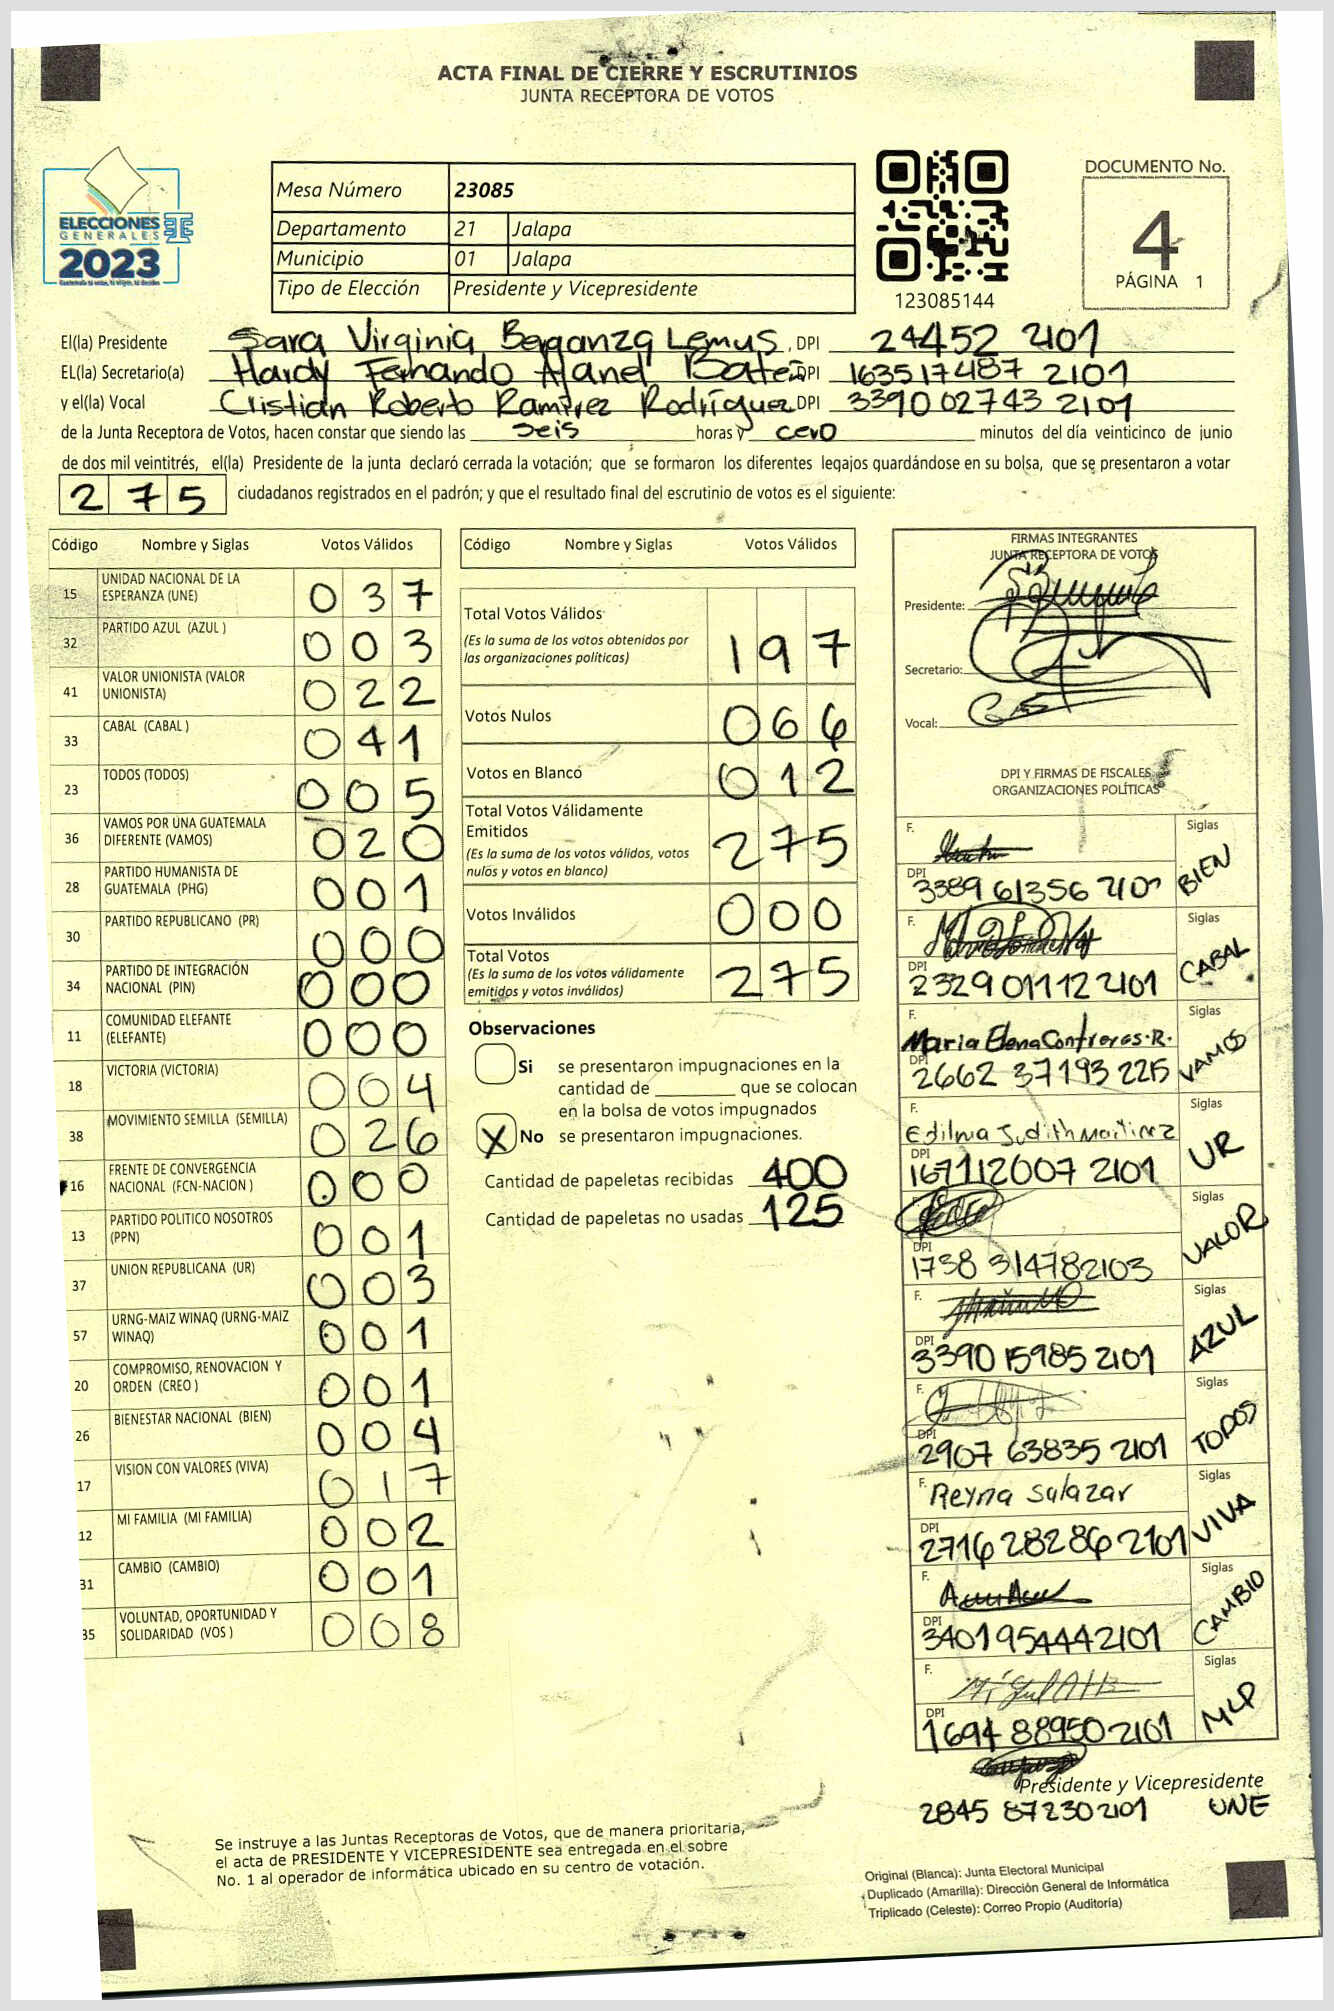 ACTA FINAL DE CIERRE Y ESCRUTINIOS
JUNTA RECEPTORA DE VOTOS
ELECCIONES
GENERALES
2023
Mesa Número 23085
Departamento 21 Jalapa
Municipio 01 Jalapa
Tipo de Elección Presidente y Vicepresidente
123085144
DOCUMENTO No.
4
PÁGINA 1
El(la) Presidente Sara Virginia Berganza Lemus DPI 24452 2101
EL(la) Secretario(a) Hardy Fernando Ajanel Batén DPI 163517487 2101
y el(la) Vocal Cristian Roberto Ramírez Rodríguez DPI 339002743 2101
de la Junta Receptora de Votos, hacen constar que siendo las seis horas y cero minutos del día veinticinco de junio
de dos mil veintitrés, el(la) Presidente de la junta declaró cerrada la votación; que se formaron los diferentes legajos guardándose en su bolsa, que se presentaron a votar
275 ciudadanos registrados en el padrón; y que el resultado final del escrutinio de votos es el siguiente:
Código Nombre y Siglas Votos Válidos
15 UNIDAD NACIONAL DE LA ESPERANZA (UNE) 037
32 PARTIDO AZUL (AZUL ) 003
41 VALOR UNIONISTA (VALOR UNIONISTA) 022
33 CABAL (CABAL ) 041
23 TODOS (TODOS) 005
36 VAMOS POR UNA GUATEMALA DIFERENTE (VAMOS) 020
28 PARTIDO HUMANISTA DE GUATEMALA (PHG) 001
30 PARTIDO REPUBLICANO (PR) 000
34 PARTIDO DE INTEGRACIÓN NACIONAL (PIN) 000
11 COMUNIDAD ELEFANTE (ELEFANTE) 000
18 VICTORIA (VICTORIA) 004
38 MOVIMIENTO SEMILLA (SEMILLA) 026
16 FRENTE DE CONVERGENCIA NACIONAL (FCN-NACION ) 000
13 PARTIDO POLITICO NOSOTROS (PPN) 001
37 UNION REPUBLICANA (UR) 003
57 URNG-MAIZ WINAQ (URNG-MAIZ WINAQ) 001
20 COMPROMISO, RENOVACION Y ORDEN (CREO ) 001
26 BIENESTAR NACIONAL (BIEN) 004
17 VISION CON VALORES (VIVA) 017
12 MI FAMILIA (MI FAMILIA) 002
31 CAMBIO (CAMBIO) 001
35 VOLUNTAD, OPORTUNIDAD Y SOLIDARIDAD (VOS ) 008
Código Nombre y Siglas Votos Válidos
Total Votos Válidos 197
(Es la suma de los votos obtenidos por
las organizaciones políticas)
Votos Nulos 066
Votos en Blanco 012
Total Votos Válidamente
Emitidos 275
(Es la suma de los votos válidos, votos
nulos y votos en blanco)
Votos Inválidos 000
Total Votos 275
(Es la suma de los votos válidamente
emitidos y votos inválidos)
Observaciones
Si se presentaron impugnaciones en la
cantidad de ________ que se colocan
en la bolsa de votos impugnados
X No se presentaron impugnaciones.
Cantidad de papeletas recibidas 400
Cantidad de papeletas no usadas 125
FIRMAS INTEGRANTES
JUNTA RECEPTORA DE VOTOS
Presidente:
Secretario:
Vocal:
DPI Y FIRMAS DE FISCALES
ORGANIZACIONES POLÍTICAS
F. Siglas
DPI 3389 61356 2101 BIEN
F. Siglas
DPI 2329 01112 2101 CABAL
F. Maria Elena Contreras.R. Siglas
DPI 2662 37193 2215 VAMOS
F. Edilma Judith Martinez Siglas
DPI 167112007 2101 UR
Siglas
DPI 1738 314782103 VALOR
F. Siglas
DPI 3390 15985 2101 AZUL
F. Siglas
DPI 2907 63835 2101 TODOS
F. Reyna Salazar Siglas
DPI 2716 28286 2101 VIVA
F. Siglas
DPI 3401954442101 CAMBIO
F. Siglas
DPI 1694 88950 2101 MLP
Presidente y Vicepresidente
2845 87230 2101 UNE
Se instruye a las Juntas Receptoras de Votos, que de manera prioritaria,
el acta de PRESIDENTE Y VICEPRESIDENTE sea entregada en el sobre
No. 1 al operador de informática ubicado en su centro de votación.
Original (Blanca): Junta Electoral Municipal
Duplicado (Amarilla): Dirección General de Informática
Triplicado (Celeste): Correo Propio (Auditoría)